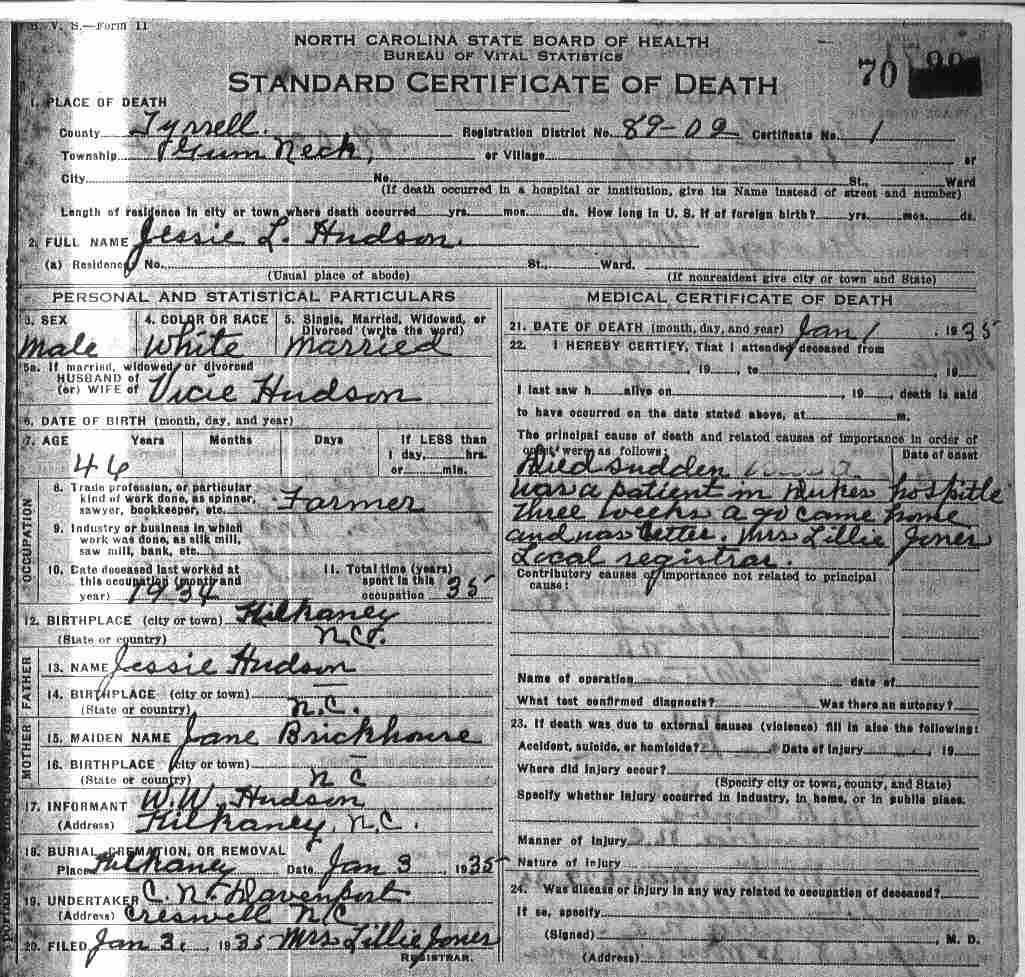 B. V. S.—Form 11
NORTH CAROLINA STATE BOARD OF HEALTH
BUREAU OF VITAL STATISTICS
STANDARD CERTIFICATE OF DEATH
70
1. PLACE OF DEATH
County Tyrrell. Registration District No. 89-02 Certificate No. 1
Township Gum Neck, or Village or
City No. St., Ward
(If death occurred in a hospital or institution, give its Name instead of street and number)
Length of residence in city or town where death occurred yrs. mos. ds. How long in U. S. if of foreign birth? yrs. mos. ds.
2. FULL NAME Jessie L. Hudson.
(a) Residence No. St., Ward.
(Usual place of abode) (If nonresident give city or town and State)
PERSONAL AND STATISTICAL PARTICULARS
3. SEX 4. COLOR OR RACE 5. Single, Married, Widowed, or
Divorced (write the word)
Male White Married
5a. If married, widowed, or divorced
HUSBAND of
(or) WIFE of Vicie Hudson
6. DATE OF BIRTH (month, day, and year)
7. AGE Years Months Days If LESS than
1 day, hrs.
46 or min.
OCCUPATION
8. Trade profession, or particular
kind of work done, as spinner,
sawyer, bookkeeper, etc. Farmer
9. Industry or business in which
work was done, as silk mill,
saw mill, bank, etc.
10. Date deceased last worked at 11. Total time (years)
this occupation (month and spent in this
year) 1934 occupation 35
12. BIRTHPLACE (city or town) Kilkaney
(State or country) N.C.
FATHER
13. NAME Jessie Hudson
14. BIRTHPLACE (city or town)
(State or country) N.C.
MOTHER
15. MAIDEN NAME Jane Brickhouse
16. BIRTHPLACE (city or town)
(State or country) N C
17. INFORMANT W.W. Hudson
(Address) Kilkaney, N.C.
18. BURIAL, CREMATION, OR REMOVAL
Place Kilkaney Date Jan 3 1935
19. UNDERTAKER C. N. Davenport
(Address) Creswell N.C
20. FILED Jan 3, 1935 Mrs Lillie Jones
REGISTRAR.
MEDICAL CERTIFICATE OF DEATH
21. DATE OF DEATH (month, day, and year) Jan 1, 1935
22. I HEREBY CERTIFY, That I attended deceased from
, 19 , to , 19
I last saw h alive on , 19 , death is said
to have occurred on the date stated above, at m.
The principal cause of death and related causes of importance in order of
onset were as follows: Date of onset
Died sudden
was a patient in Dukes hospitle
three weeks a go came home
and was better. Mrs Lillie Jones
Local registrar.
Contributory causes of importance not related to principal
cause:
Name of operation date of
What test confirmed diagnosis? Was there an autopsy?
23. If death was due to external causes (violence) fill in also the following:
Accident, suicide, or homicide? Date of injury , 19
Where did injury occur?
(Specify city or town, county, and State)
Specify whether injury occurred in industry, in home, or in public place.
Manner of injury
Nature of injury
24. Was disease or injury in any way related to occupation of deceased?
If so, specify
(Signed) , M. D.
(Address)